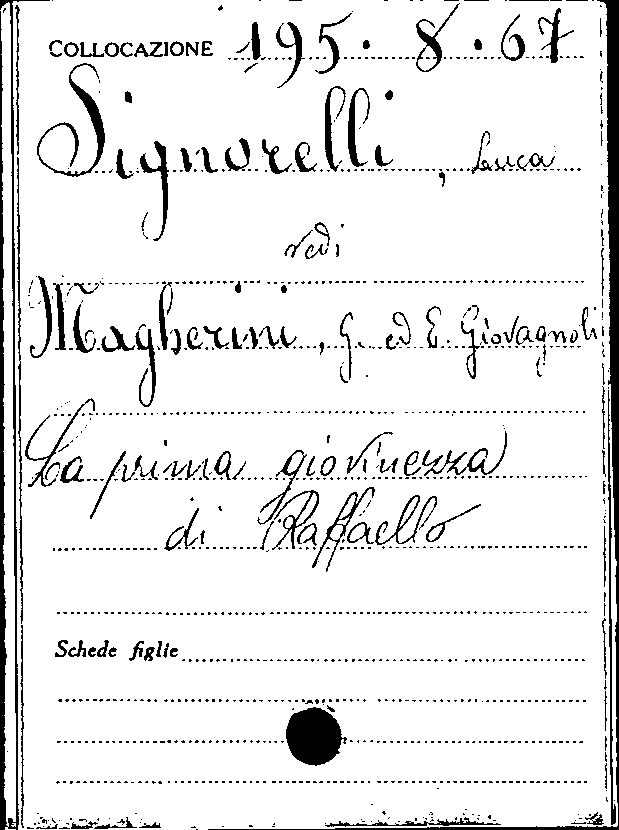 COLLOCAZIONE 195.8.67
Signorelli, Luca
vedi
Magherini, G. ed E. Giovagnoli
La prima giovinezza
di Raffaello
Schede figlie